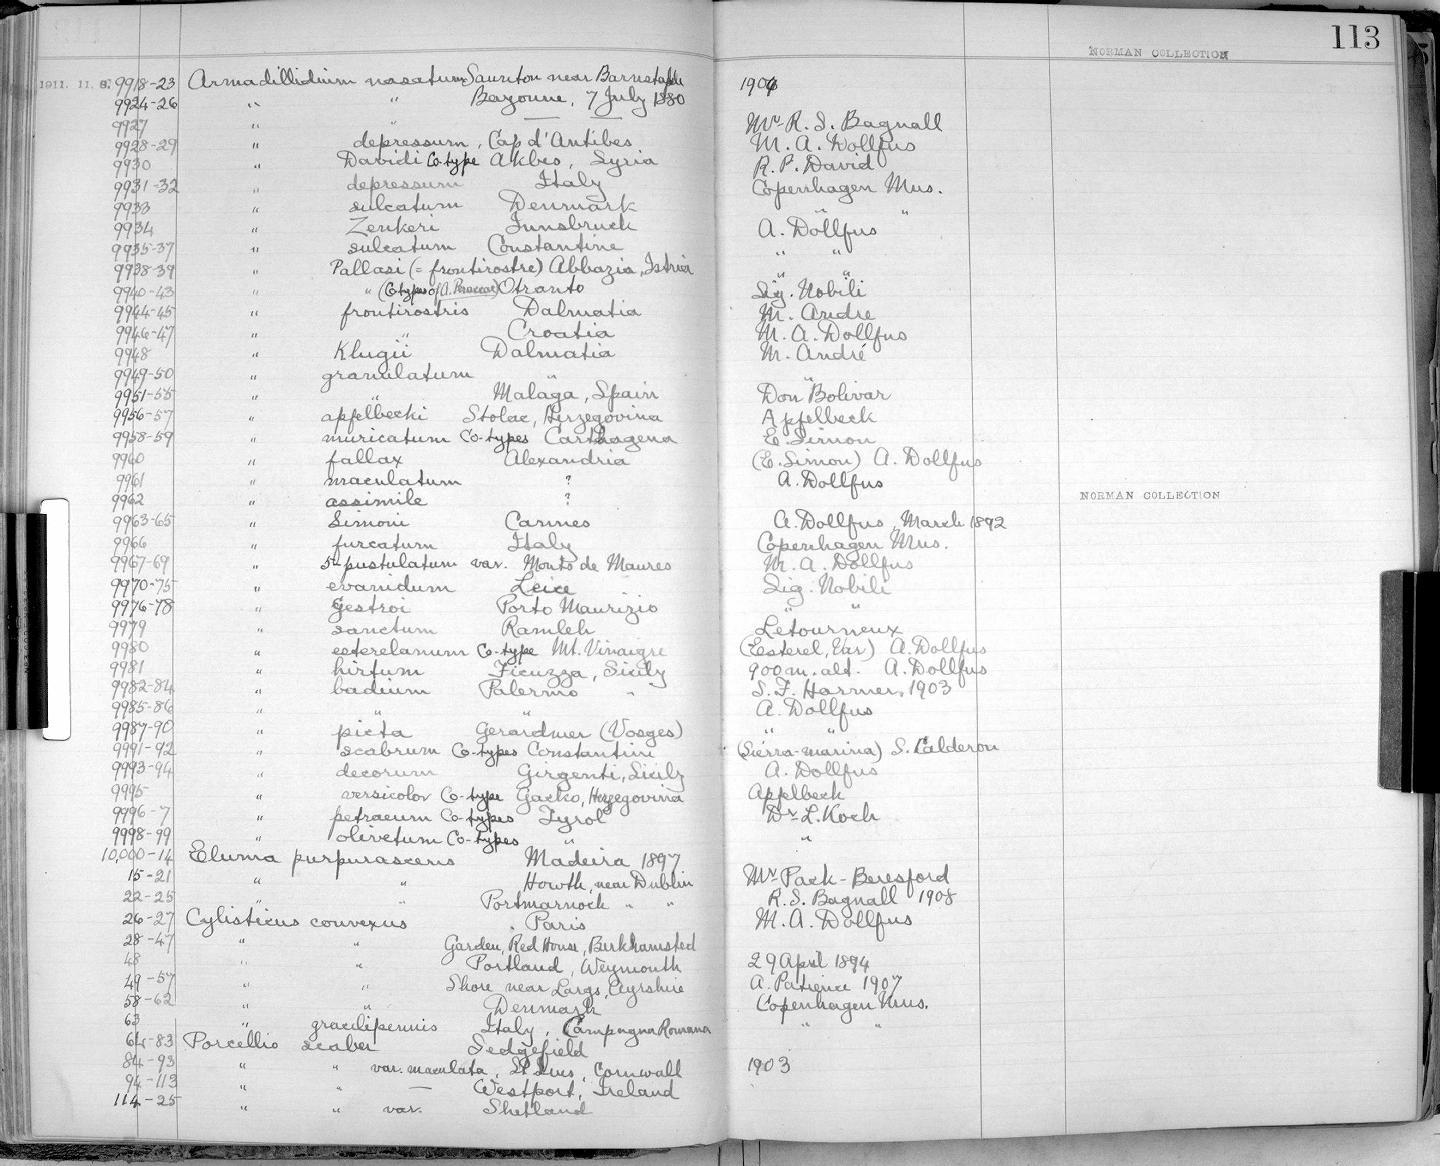 113
NORMAN COLLECTION
1911. 11. 8. 9918-23 Armadillidium nasatum Saunton near Barnstaple 1904
9924-26 " " Bayonne, 7 July 1880
9927 " " — — Mr R. S. Bagnall
9928-29 " depressum, Cap d'Antibes M. A. Dollfus
9930 " Davidi Co-type Akbes, Syria R. P. David
9931-32 " depressum Italy Copenhagen Mus.
9933 " sulcatum Denmark " "
9934 " Zenkeri Innsbruck A. Dollfus
9935-37 " sulcatum Constantine " "
9938-39 " Pallasi (= frontirostre) Abbazia, Istria " "
9940-43 " " (Co-types of A. Peraccae) Otranto Sig. Nobili
9944-45 " frontirostris Dalmatia M. André
9946-47 " " Croatia M. A. Dollfus
9948 " Klugii Dalmatia M. André
9949-50 " granulatum " "
9951-55 " " Malaga, Spain Don Bolivar
9956-57 " apfelbecki Stolac, Herzegovina Apfelbeck
9958-59 " muricatum Co-types Carthagena E. Simon
9960 " fallax Alexandria (E. Simon) A. Dollfus
9961 " maculatum ? A. Dollfus
9962 " assimile ? NORMAN COLLECTION
9963-65 " Simoni Cannes A. Dollfus, March 1892
9966 " furcatum Italy Copenhagen Mus.
9967-69 " 5-pustulatum var. Monts de Maures M. A. Dollfus
9970-75 " evanidum Leice Sig. Nobili
9976-78 " Gestroi Porto Maurizio " "
9979 " sanctum Ramleh Letourneux
9980 " esterelanum Co-type Mt. Vinaigre (Esterel, Var) A. Dollfus
9981 " hirtum Ficuzza, Sicily 900 m. alt. A. Dollfus
9982-84 " badium Palermo " S. F. Harmer, 1903
9985-86 " " " A. Dollfus
9987-90 " picta Gerardmer (Vosges) " "
9991-92 " scabrum Co-types Constantini (Sierra-marina) S. Calderon
9993-94 " decorum Girgenti, Sicily A. Dollfus
9995 " versicolor Co-type Gacko, Herzegovina Apfelbeck
9996-7 " petraeum Co-types Tyrol Dr L. Koch
9998-99 " olivetum Co-types " "
10,000-14 Eluma purpurascens Madeira 1897
15-21 " " Howth, near Dublin Mr Pack-Beresford
22-25 " " Portmarnock " " R. S. Bagnall 1908
26-27 Cylisticus convexus Paris M. A. Dollfus
28-47 " " Garden, Red House, Berkhamsted
48 " " Portland, Weymouth 29 April 1894
49-57 " " Shore near Largs, Ayrshire A. Patience 1907
58-62 " " Denmark Copenhagen Mus.
63 " gracilipennis Italy, Campagna Romana " "
64-83 Porcellio scaber Sedgefield
84-93 " " var. maculata, St Ives, Cornwall 1903
94-113 " " — Westport, Ireland
114-25 " " var. Shetland